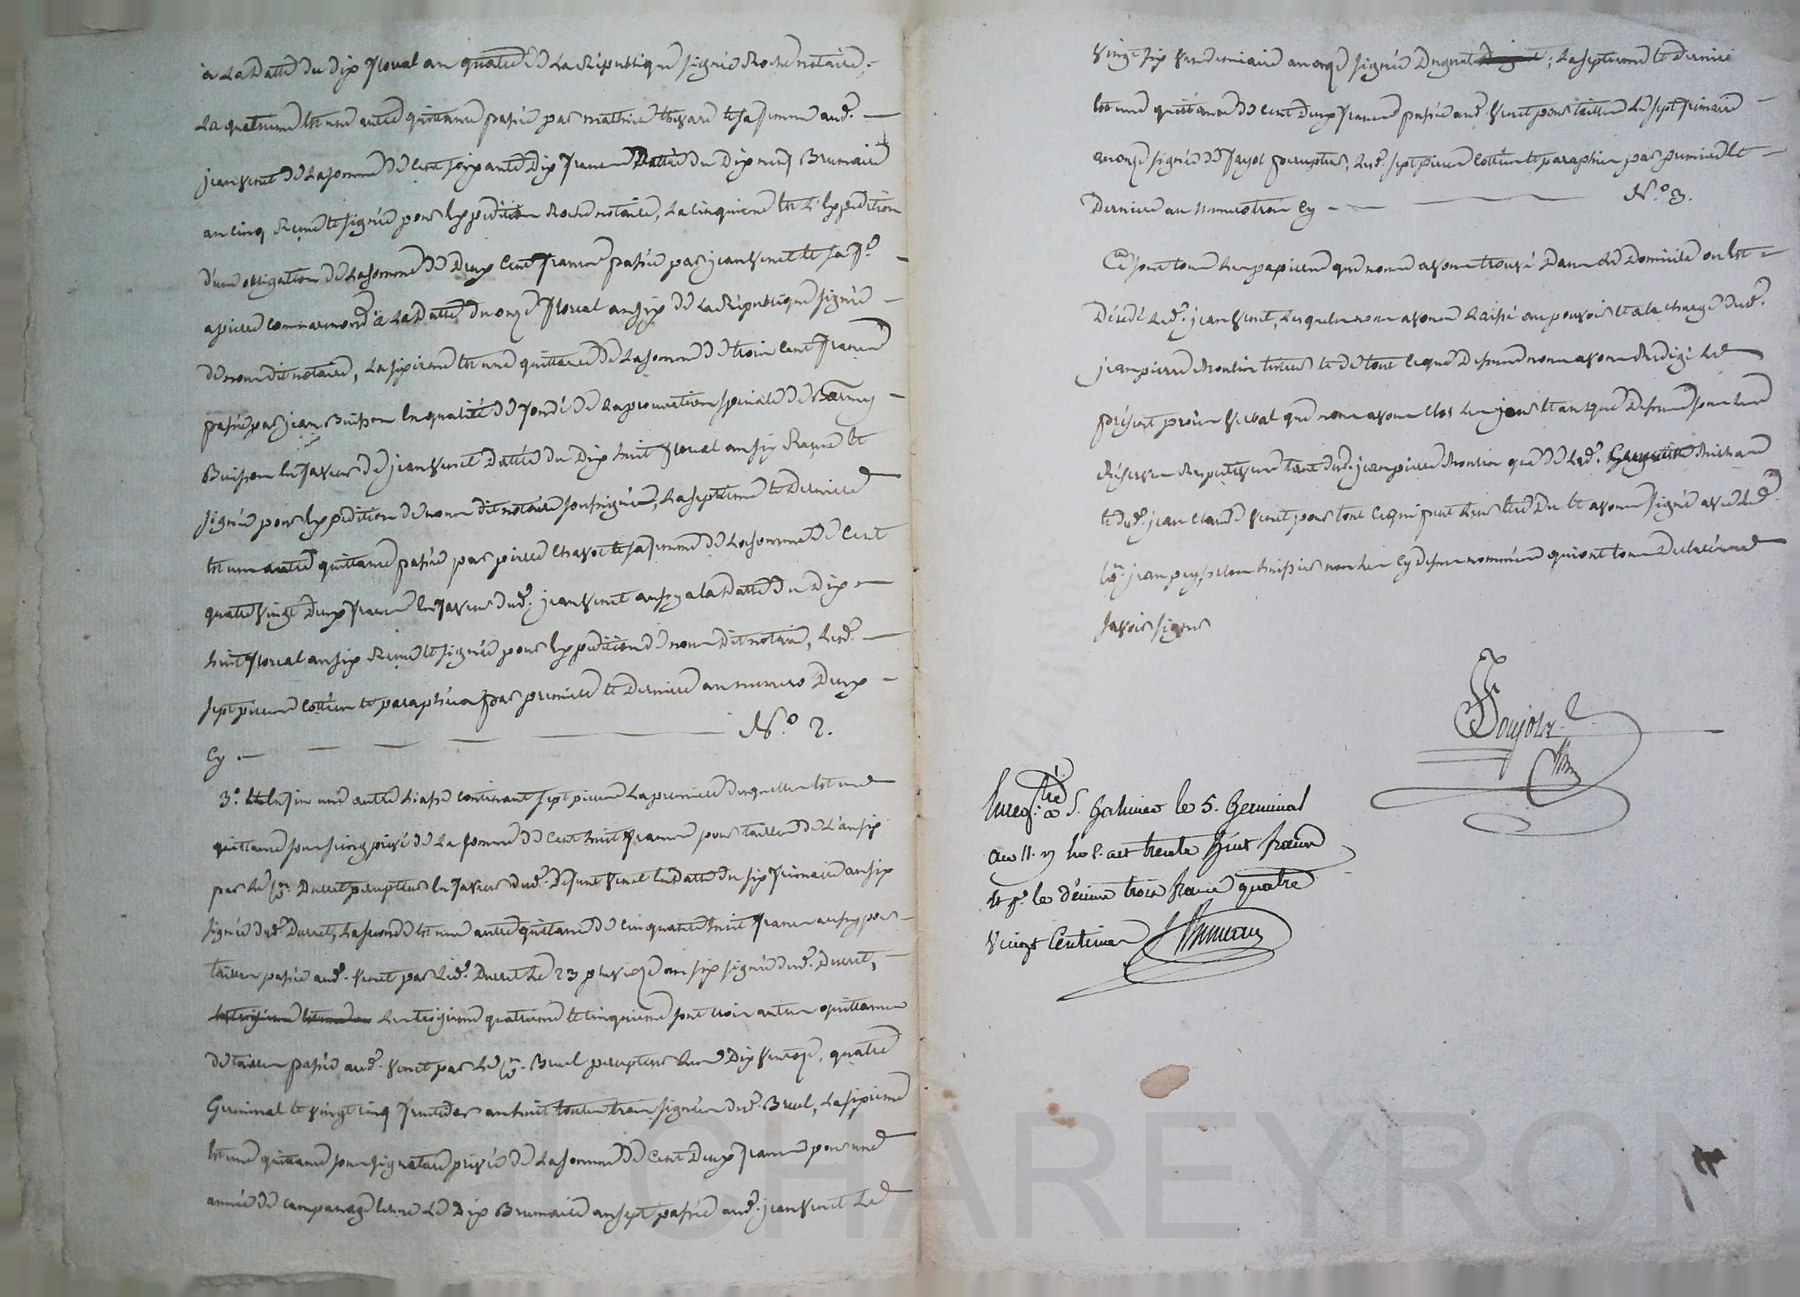 à la datte du dix floral an quatre de la République signée Roche notaire,
la quatrieme est une autre quittance passée par mathieu et sa femme aud.
jean Vinet de la somme de cent soixante dix francs dattée du dix neuf Brumaire
an cinq Reçue et signée pour Expedition Roche notaire, la cinquieme est l'Expedition
d'une obligation de la somme de deux cent francs passée par jean Vinet et sa f.e
a pierre à la datte du onze floreal an six de la République signée
de nous dit notaire, la sixieme est une quittance de la somme de trois cent francs
passée par jean Buisson en qualité de fondé de la procuration speciale de Barmy
Buisson en faveur de jean Vinet dattée du dix huit floreal an six Recue et
signée pour Expedition de nous dit notaire soussigné, la septieme et derniere
est une autre quittance passée par pierre Chavot et sa femme de la somme de cent
quatre vingt deux francs en faveur dud. jean Vinet aussy a la datte du dix
huit floreal an six Reçue et signée pour Expedition de nous dit notaire, lesd.
sept pieces cottées et paraphées par premiere et derniere au numero deux
Cy — N.o 2.
3.o Enfin une autre liasse contenant sept pieces la premiere desquelles est une
quittance sous seing privé de la somme de cent huit francs pour tailles de l'an six
par le C.en Ducret percepteur en faveur dud. defunt Vinet en datte du six frimaire an six
signée dud. Ducret, la seconde est une autre quittance de cinquante huit francs aussy pour
tailles passée aud. Vinet par led. Ducret le 23 pluviose an six signée dud. Ducret,
les troisieme quatrieme et cinquieme sont trois autres quittances
de tailles passées aud. Vinet par le C.en Bruel percepteur les dix ventose, quatre
Germinal et vingt cinq fructidor an huit toutes trois signées dud. Bruel, la sixieme
est une quittance sous signature privée de la somme de cent deux francs pour une
année de le dix Brumaire an sept passée aud. jean Vinet le
vingt six vendemiaire an onze signée Duguet; la septieme et derniere
est une quittance de cent deux francs passée aud. Vinet pour tailles le sept frimaire
an onze signée de percepteur, lesd. sept pieces cottées et paraphées par premiere et
derniere au numero trois Cy — N.o 3.
Ce sont tous les papiers que nous avons trouvé dans le domicile ou est
décédé led. jean Vinet, lesquels nous avons laissé au pouvoir et a la charge dud.
jean pierre Montin tuteur et de tout ce que dessus nous avons Redigé le
présent procès verbal que nous avons clos les jour et an que dessus sous les
Réserves Respectives tant dud. jean pierre Montin que de lad. Michard
et dud. jean claude Vinet pour tout ce qui peut leur etre du et avons signé avec led.
C.en jean peysselon huissier non les cy dessus nommés qui ont tous declarés ne
savoir signer
Boujot
Enreg.tré à S. Galmier le 5. Germinal
an 11. reçu trente huit francs
et p.r le décime trois francs quatre
vingt Centimes